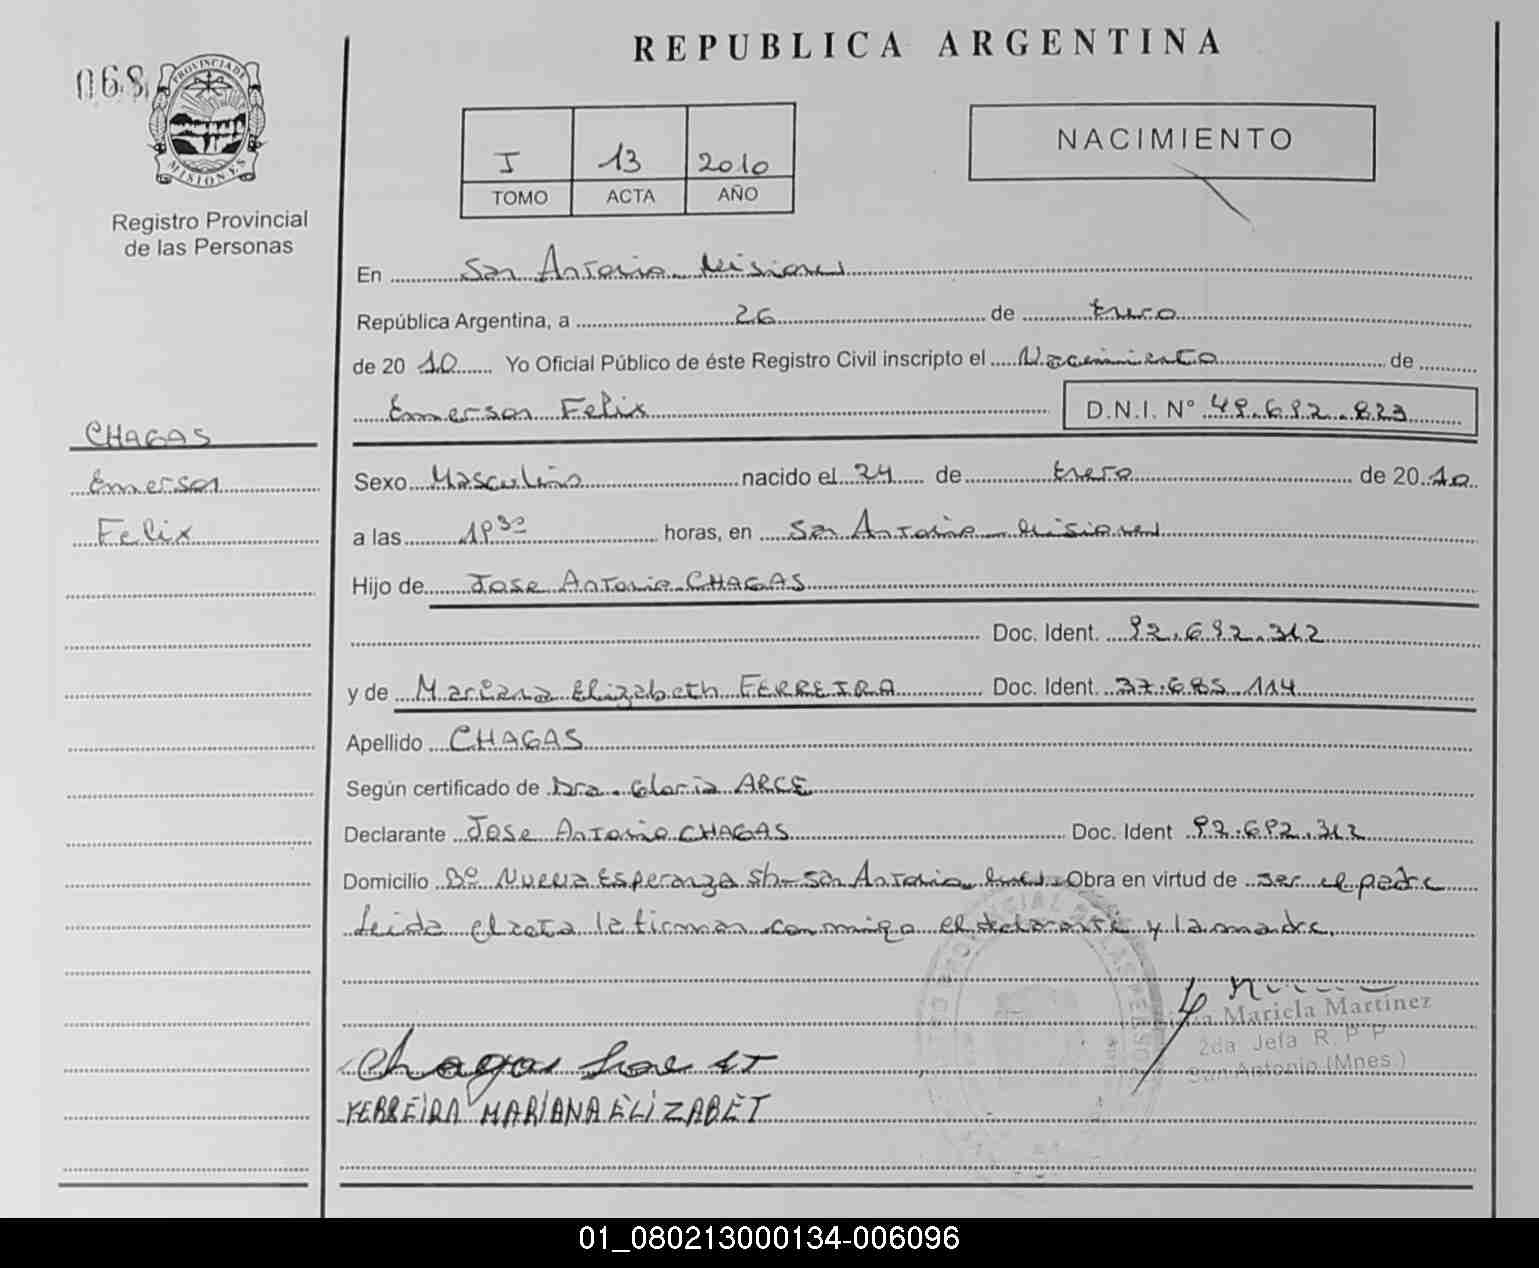 REPUBLICA ARGENTINA
068
PROVINCIA DE
MISIONES
Registro Provincial
de las Personas
I 13 2010
TOMO ACTA AÑO
NACIMIENTO
En San Antonio Misiones
República Argentina, a 26 de Enero
de 20 10 Yo Oficial Público de éste Registro Civil inscripto el Nacimiento de
Emerson Felix D.N.I. N° 49.692.823
CHAGAS
Emerson
Felix
Sexo Masculino nacido el 24 de Enero de 20 10
a las 19³⁰ horas, en San Antonio Misiones
Hijo de Jose Antonio CHAGAS
Doc. Ident. 92.692.312
y de Mariana Elizabeth FERREIRA Doc. Ident. 37.685.114
Apellido CHAGAS
Según certificado de Dra. Gloria ARCE
Declarante Jose Antonio CHAGAS Doc. Ident 92.692.312
Domicilio Bº Nueva Esperanza San Antonio Mnes. Obra en virtud de ser el padre
Leida el acta la firman conmigo el declarante y la madre.
Maricla Martinez
2da Jefa R. P P
San Antonio (Mnes.)
Chagas Jose
FERREIRA MARIANA ELIZABET
01_080213000134-006096